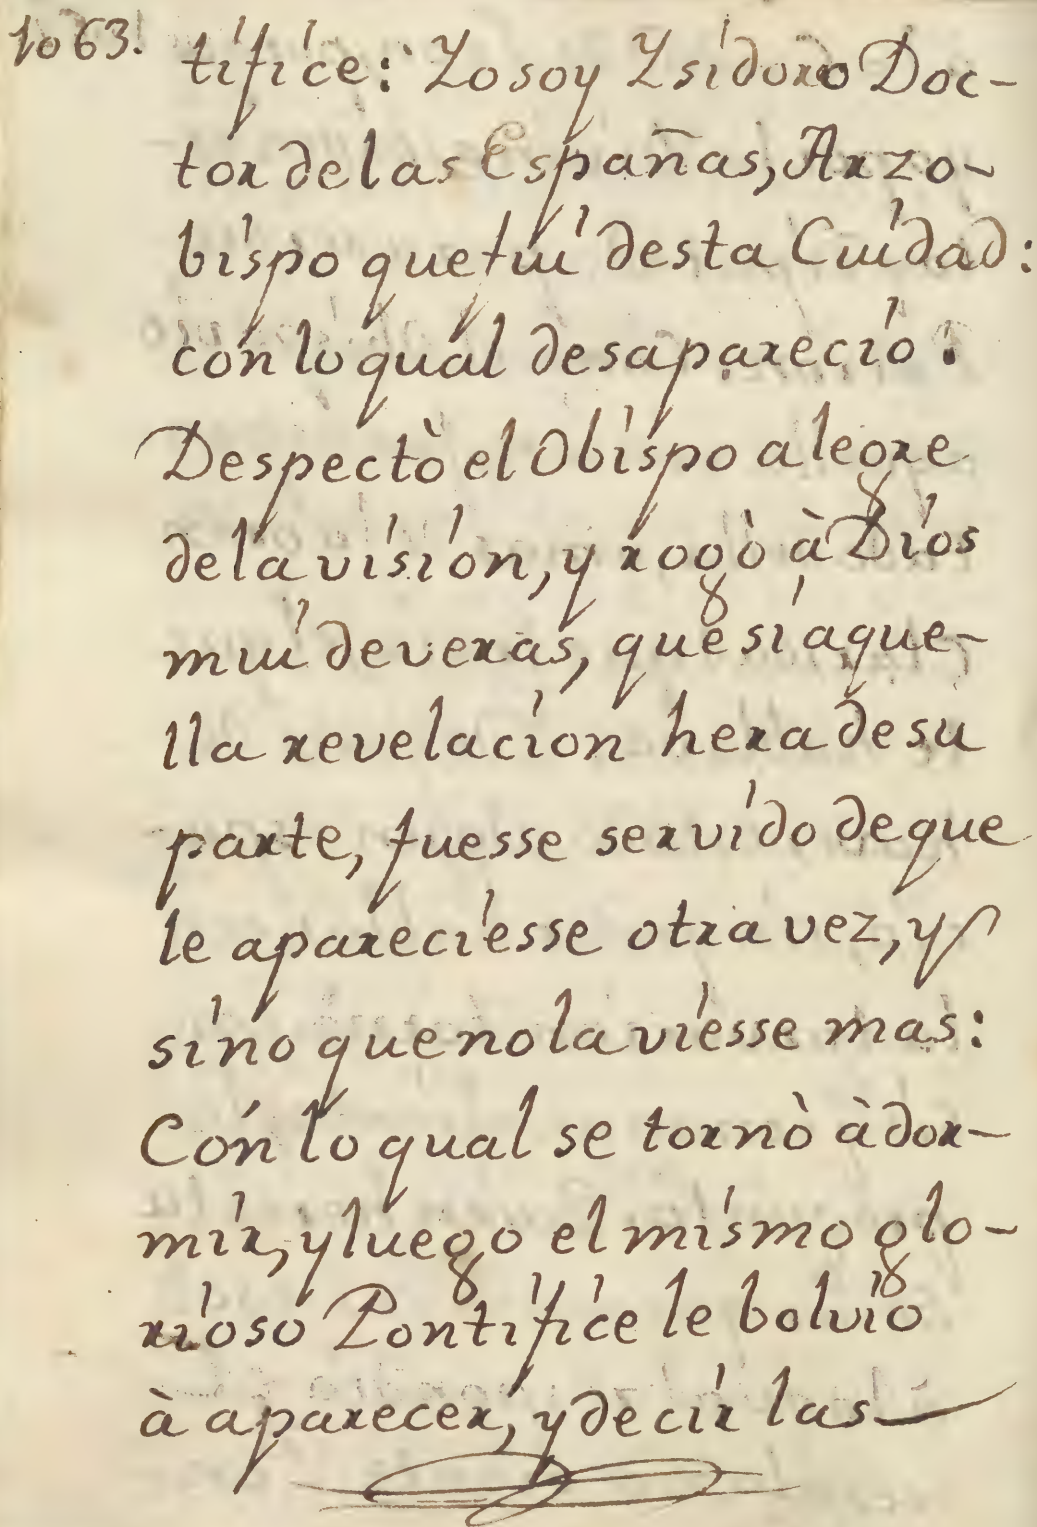 1063.
tifice: Yo soy Ysidoro Doc-
tor de las Españas, Arzo-
bispo que fui desta Cuidad:
con lo qual desapareció:
Despectò el Obispo alegre
de la vision, y rogò à Dios
mui de veras, que si aque-
lla revelacion hera de su
parte, fuesse servido de que
le apareciesse otra vez, y
sino que no la viesse mas:
Con lo qual se tornò à dor-
mir, y luego el mismo glo-
rioso Pontifice le bolvio
à aparecer, y decir las